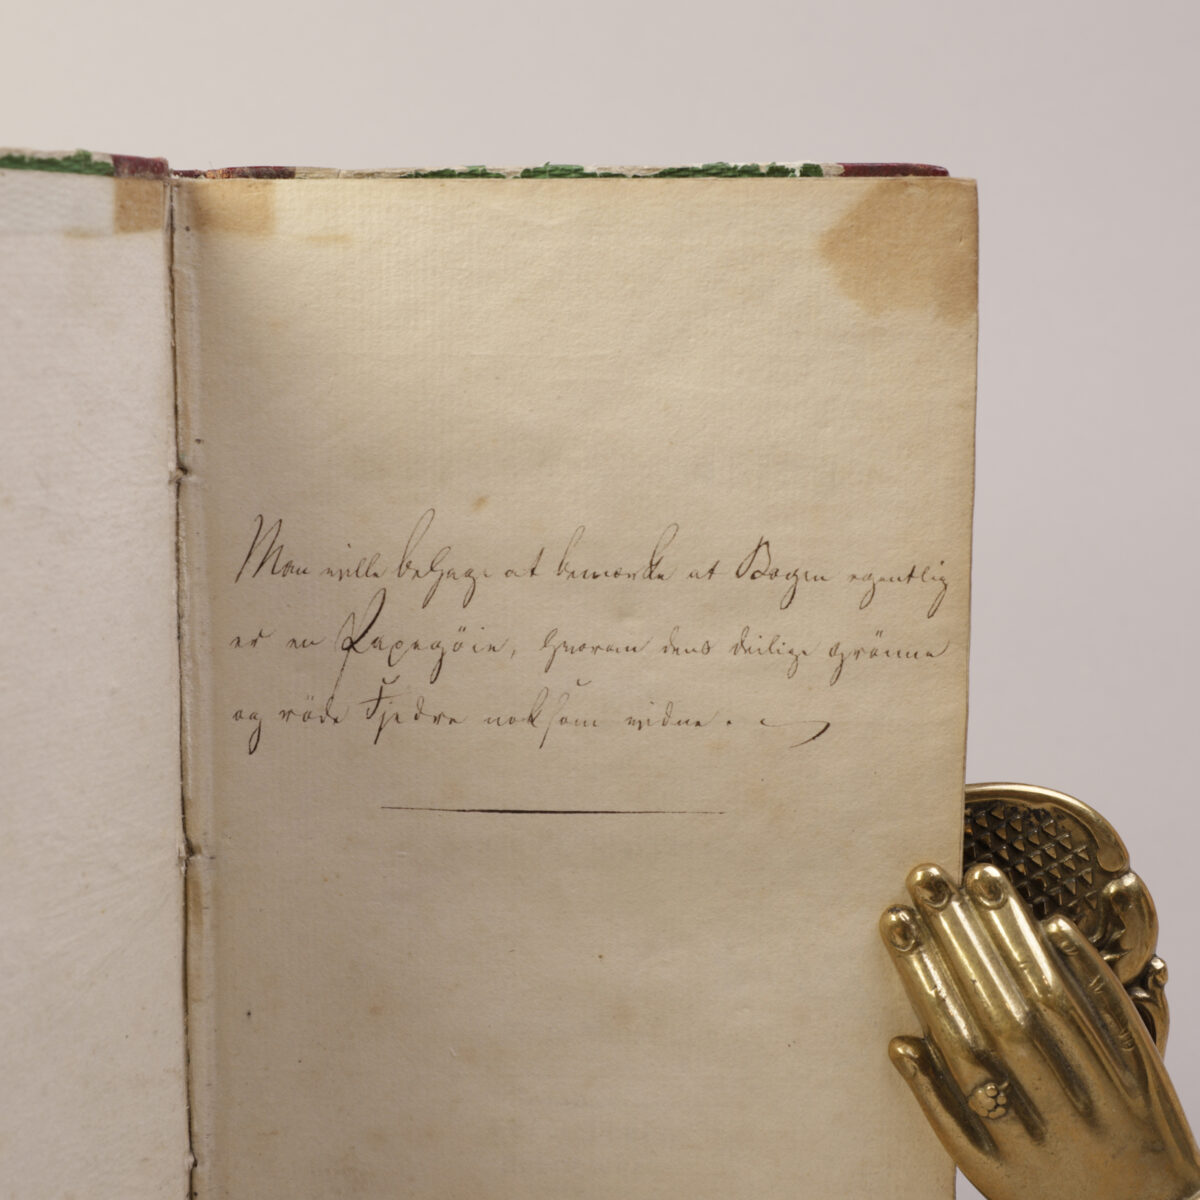 Man ville behage at bemærke at Bogen egentlig
er en Papegöie, hvorom dens deilige grönne
og röde Fjedre noksom vidne.